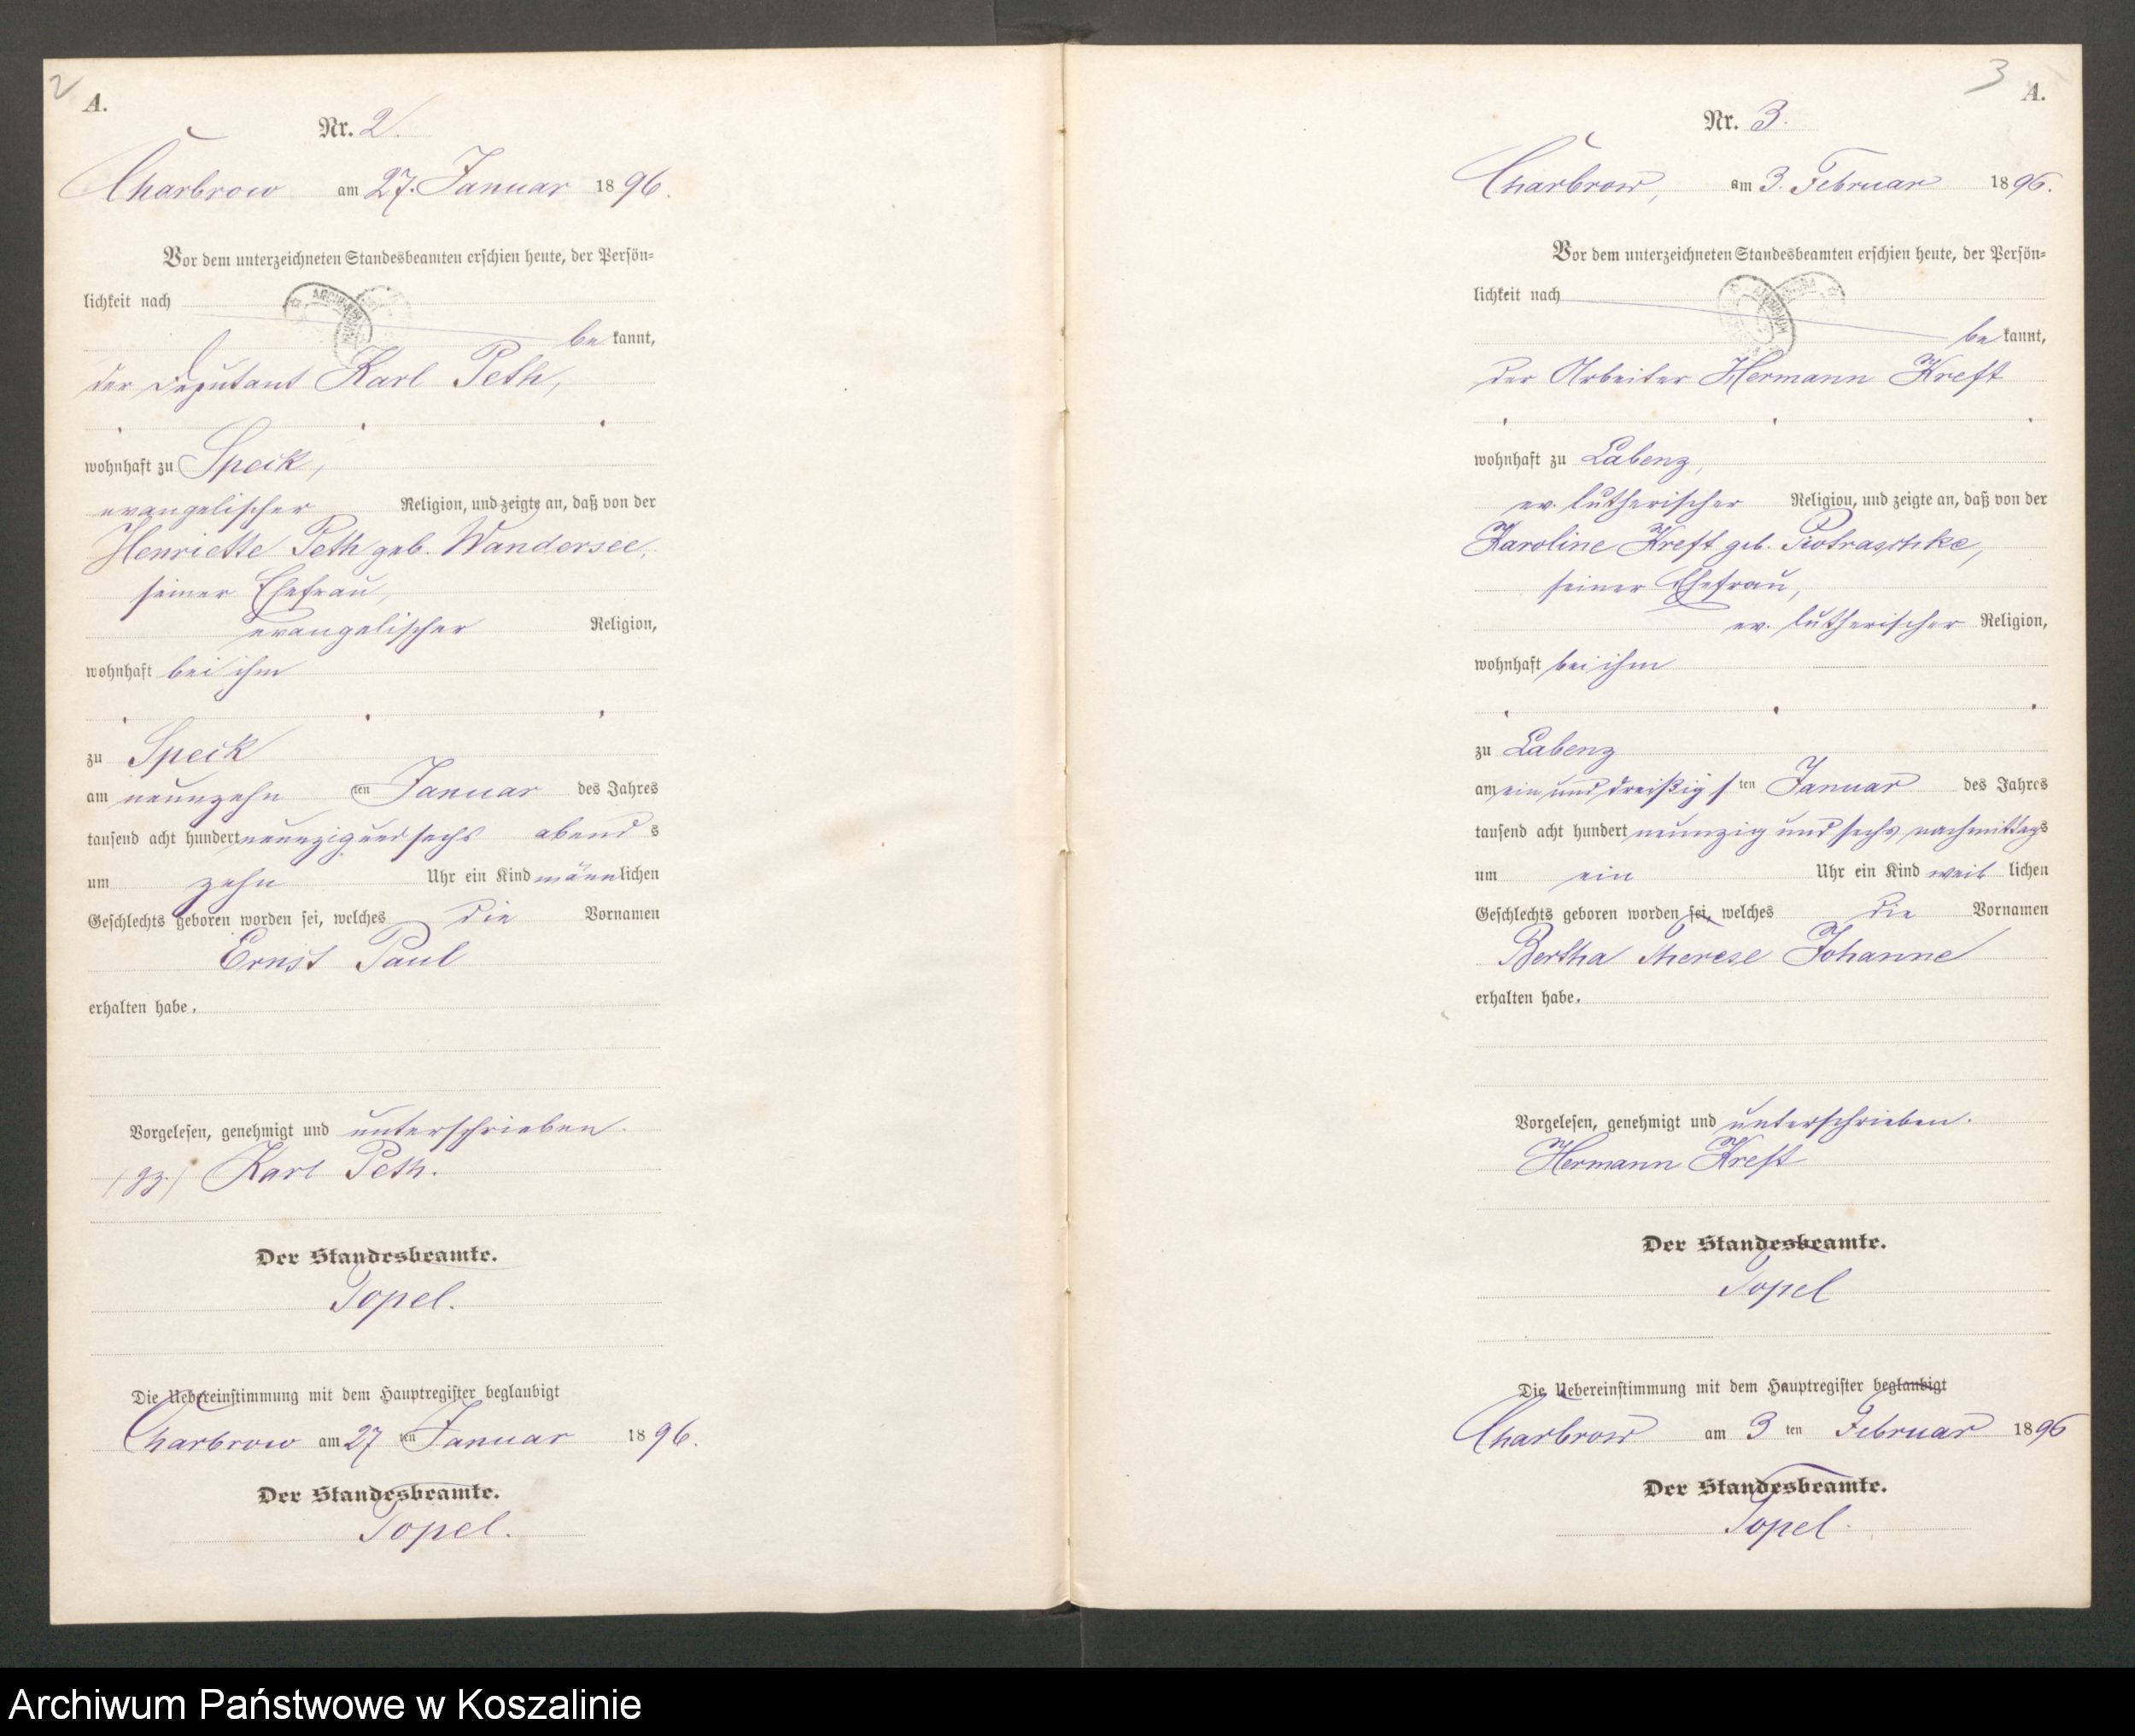 2
A.
Nr. 2.
Charbrow am 27. Januar 1896.
Vor dem unterzeichneten Standesbeamten erschien heute, der Persön=
lichkeit nach
bekannt,
der Deputant Karl Peth,
wohnhaft zu Speck,
evangelischer Religion, und zeigte an, daß von der
Henriette Peth geb. Wandersee,
seiner Ehefrau,
evangelischer Religion,
wohnhaft bei ihm
zu Speck
am neunzehn ten Januar des Jahres
tausend acht hundert neunzig und sechs abends
um zehn Uhr ein Kind männlichen
Geschlechts geboren worden sei, welches die Vornamen
Ernst Paul
erhalten habe.
Vorgelesen, genehmigt und unterschrieben.
(gz.) Karl Peth.
Der Standesbeamte.
Topel.
Die Uebereinstimmung mit dem Hauptregister beglaubigt
Charbrow am 27 ten Januar 1896.
Der Standesbeamte.
Topel.
3
A.
Nr. 3.
Charbrow, am 3. Februar 1896.
Vor dem unterzeichneten Standesbeamten erschien heute, der Persön=
lichkeit nach
bekannt,
der Arbeiter Hermann Kreft
wohnhaft zu Labenz,
ev. lutherischer Religion, und zeigte an, daß von der
Karoline Kreft geb. Piotraschke,
seiner Ehefrau,
ev. lutherischer Religion,
wohnhaft bei ihm
zu Labenz
am ein und dreißigsten Januar des Jahres
tausend acht hundert neunzig und sechs nachmittags
um ein Uhr ein Kind weiblichen
Geschlechts geboren worden sei, welches die Vornamen
Bertha Therese Johanne
erhalten habe.
Vorgelesen, genehmigt und unterschrieben.
Hermann Kreft
Der Standesbeamte.
Topel
Die Uebereinstimmung mit dem Hauptregister beglaubigt
Charbrow am 3 ten Februar 1896
Der Standesbeamte.
Topel.
Archiwum Państwowe w Koszalinie